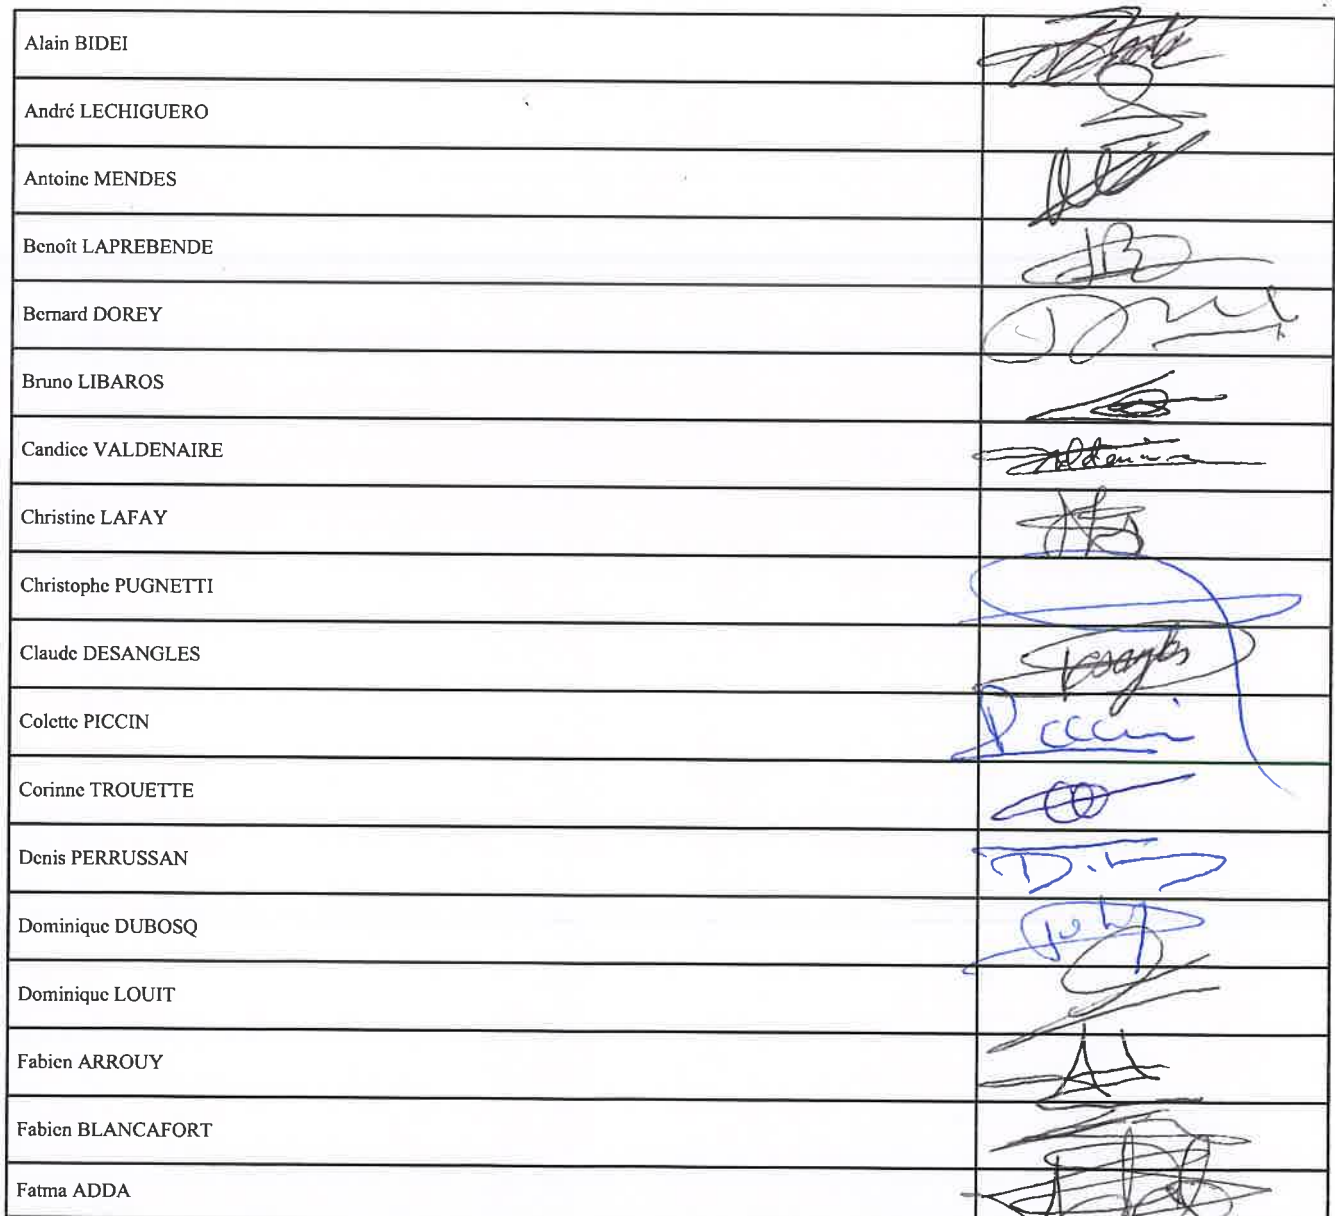 Alain BIDEI
André LECHIGUERO
Antoine MENDES
Benoît LAPREBENDE
Bernard DOREY
Bruno LIBAROS
Candice VALDENAIRE
Christine LAFAY
Christophe PUGNETTI
Claude DESANGLES
Colette PICCIN Piccin
Corinne TROUETTE
Denis PERRUSSAN
Dominique DUBOSQ
Dominique LOUIT
Fabien ARROUY
Fabien BLANCAFORT
Fatma ADDA